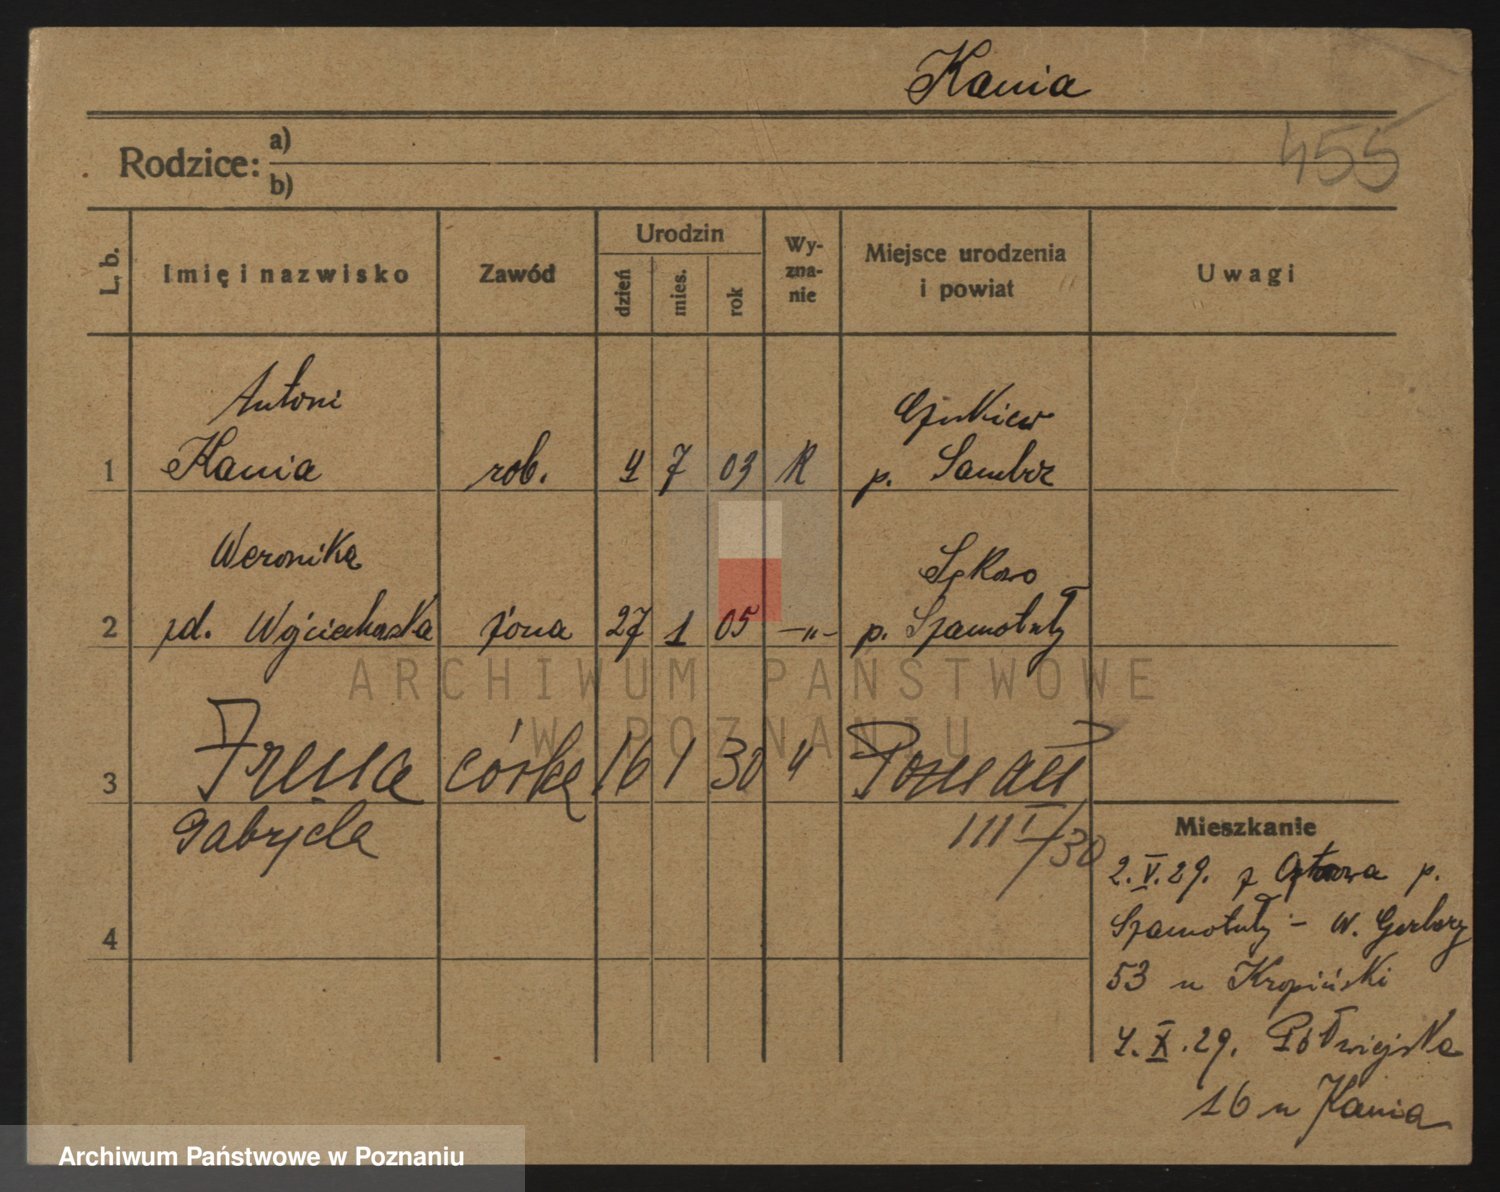 Kania
455
Rodzice: a)
b)
L. b.
Imię i nazwisko
Zawód
Urodzin
dzień
mies.
rok
Wy-
zna-
nie
Miejsce urodzenia
i powiat
Uwagi
Antoni
1 Kania rob. 4 7 03 R p. Sambor
Weronika Sękowo
2 zd. Wojciechowska żona 27 1 05 –"– p. Szamotuły
3 Irena córka 16 1 30 " Poznań
Gabryela III I/30
4
Mieszkanie
2.V.29. z p.
Szamotuły – W. Garbary
53 u Kropiński
4.X.29. Półwiejska
16 u Kania
ARCHIWUM PAŃSTWOWE
W POZNANIU
Archiwum Państwowe w Poznaniu